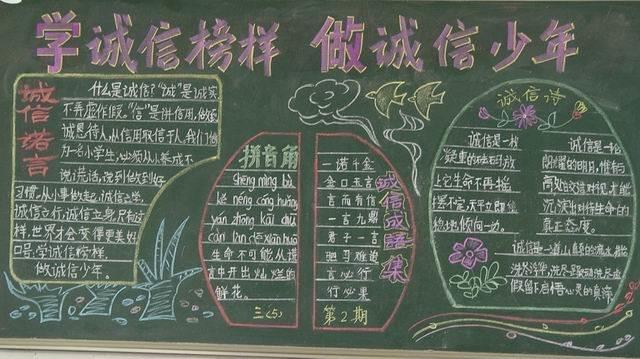 学诚信榜样 做诚信少年
诚信诺言
什么是诚信?"诚"是诚实
不弄虚作假。"信"是讲信用,
诚恳待人,从信用取信于人,我们作
为一名小学生,必须从小养成不
说谎话,说到做到好
习惯。从小事做起,诚信之学,
诚信之行,诚信立身,只有这
样,世界才会变得更美好
口号:学诚信榜样,
做诚信少年。
拼音角
shēng mìng bù
kě néng cóng huǎng
yán zhōng kāi chū
càn làn de xiān huā
生命不可能从谎
言中开出灿烂的
鲜花。
三(5)
诚信成語集
一诺千金
金口玉言
言而有信
一言九鼎
君子一言
驷马难追
言必行
行必果
第2期
诚信诗
诚信是一枚
凝重的砝码,放
上它生命不再摇
摆不定,天平立即
倾向一方。
诚信是一轮
朗耀的明月,惟有
高处的交谈对视,才能
沉淀出对待生命的
真正态度。
诚信是一道山巅的流水,
洗尽浮华,洗尽躁动,洗尽
假留下启悟心灵的真谛